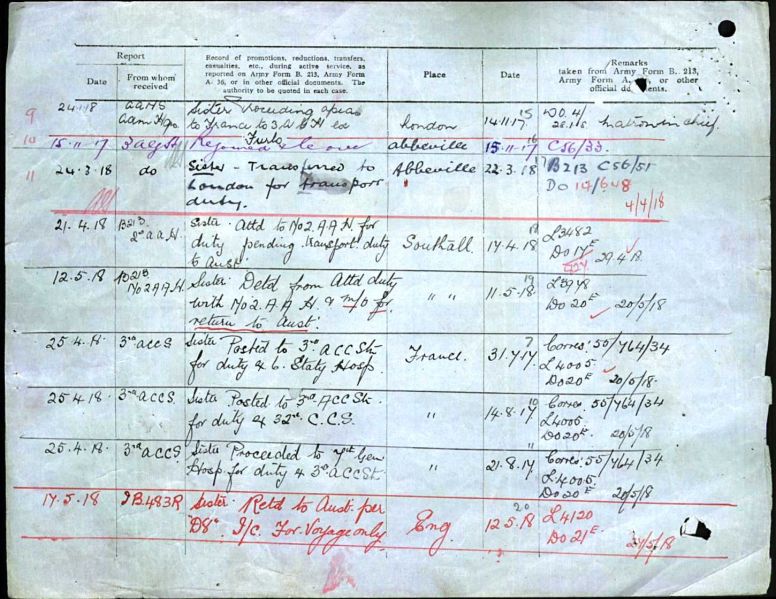 Report
Record of promotions, reductions, transfers,
casualties, etc., during active service, as
reported on Army Form B. 213, Army Form
A. 36, or in other official documents. The
authority to be quoted in each case.
Place
Date
Remarks
taken from Army Form B. 213,
Army Form A. or other
official documents.
Date
From whom
received
9
24.1.18
AANS
Sister Proceeding
to France to 3. A G H
London
15
14.11.17
DO.4/
Matron in Chief
10
15.11.17
3 AGH
Rejoined
Furlo
Abbeville
16
15.11.17
C56/33.
11
24.3.18
do
Sister - Transferred to
London for Transport
duty.
Abbeville
17
22.3.18
B213 C56/51
DO
4/4/18
21.4.18
B213
2nd A.A.H.
Sister Attd to No2.A.A.H. for
duty pending transport duty
to Aust.
Southall
18
17.4.18
L3482
DO 17E
29.4.18
12.5.18
B213
No2 A.A.H.
Sister Detd from Attd duty
with No2. A.A.H. & m/o for
return to Aust.
" "
19
11.5.18
DO 20E 20/5/18
25.4.18
3rd ACCS
Sister Posted to 3rd ACC Stn
for duty & 6. Staty Hosp.
France
7
31.7.17
Corres. 55/764/34
L4005
DO20E 20/5/18.
25.4.18
3rd ACCS.
Sister Posted to 3rd ACC Stn.
for duty & 32nd C.C.S.
"
10
14.8.17
Corres. 55/764/34
L4005
DO20E 20/5/18
25.4.18
3rd ACCS
Sister Proceeded to 7th Gen
Hosp for duty & 3rd ACC Stn
"
11
21.8.17
Corres. 55/764/34
L4005
DO20E 20/5/18
17.5.18
IB.483R
Sister Retd to Aust per
"D8". I/c. For Voyage only
Eng
20
12.5.18
L4120
DO 21E
27/5/18